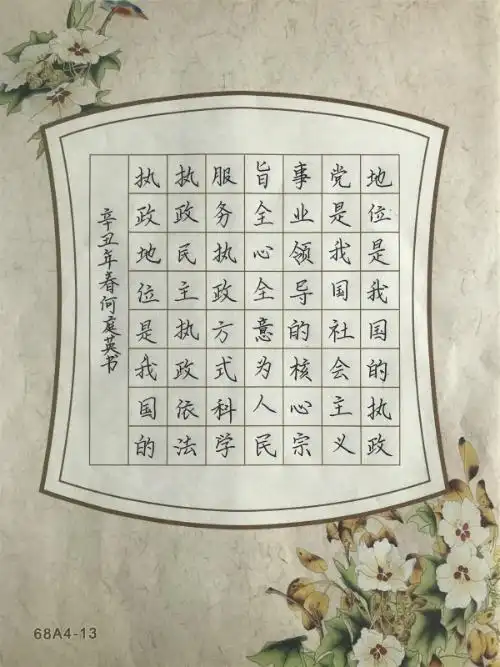 地位是我国的执政
党是我国社会主义
事业领导的核心宗
旨全心全意为人民
服务执政方式科学
执政民主执政依法
执政地位是我国的
辛丑年春何庭英书
68A4-13